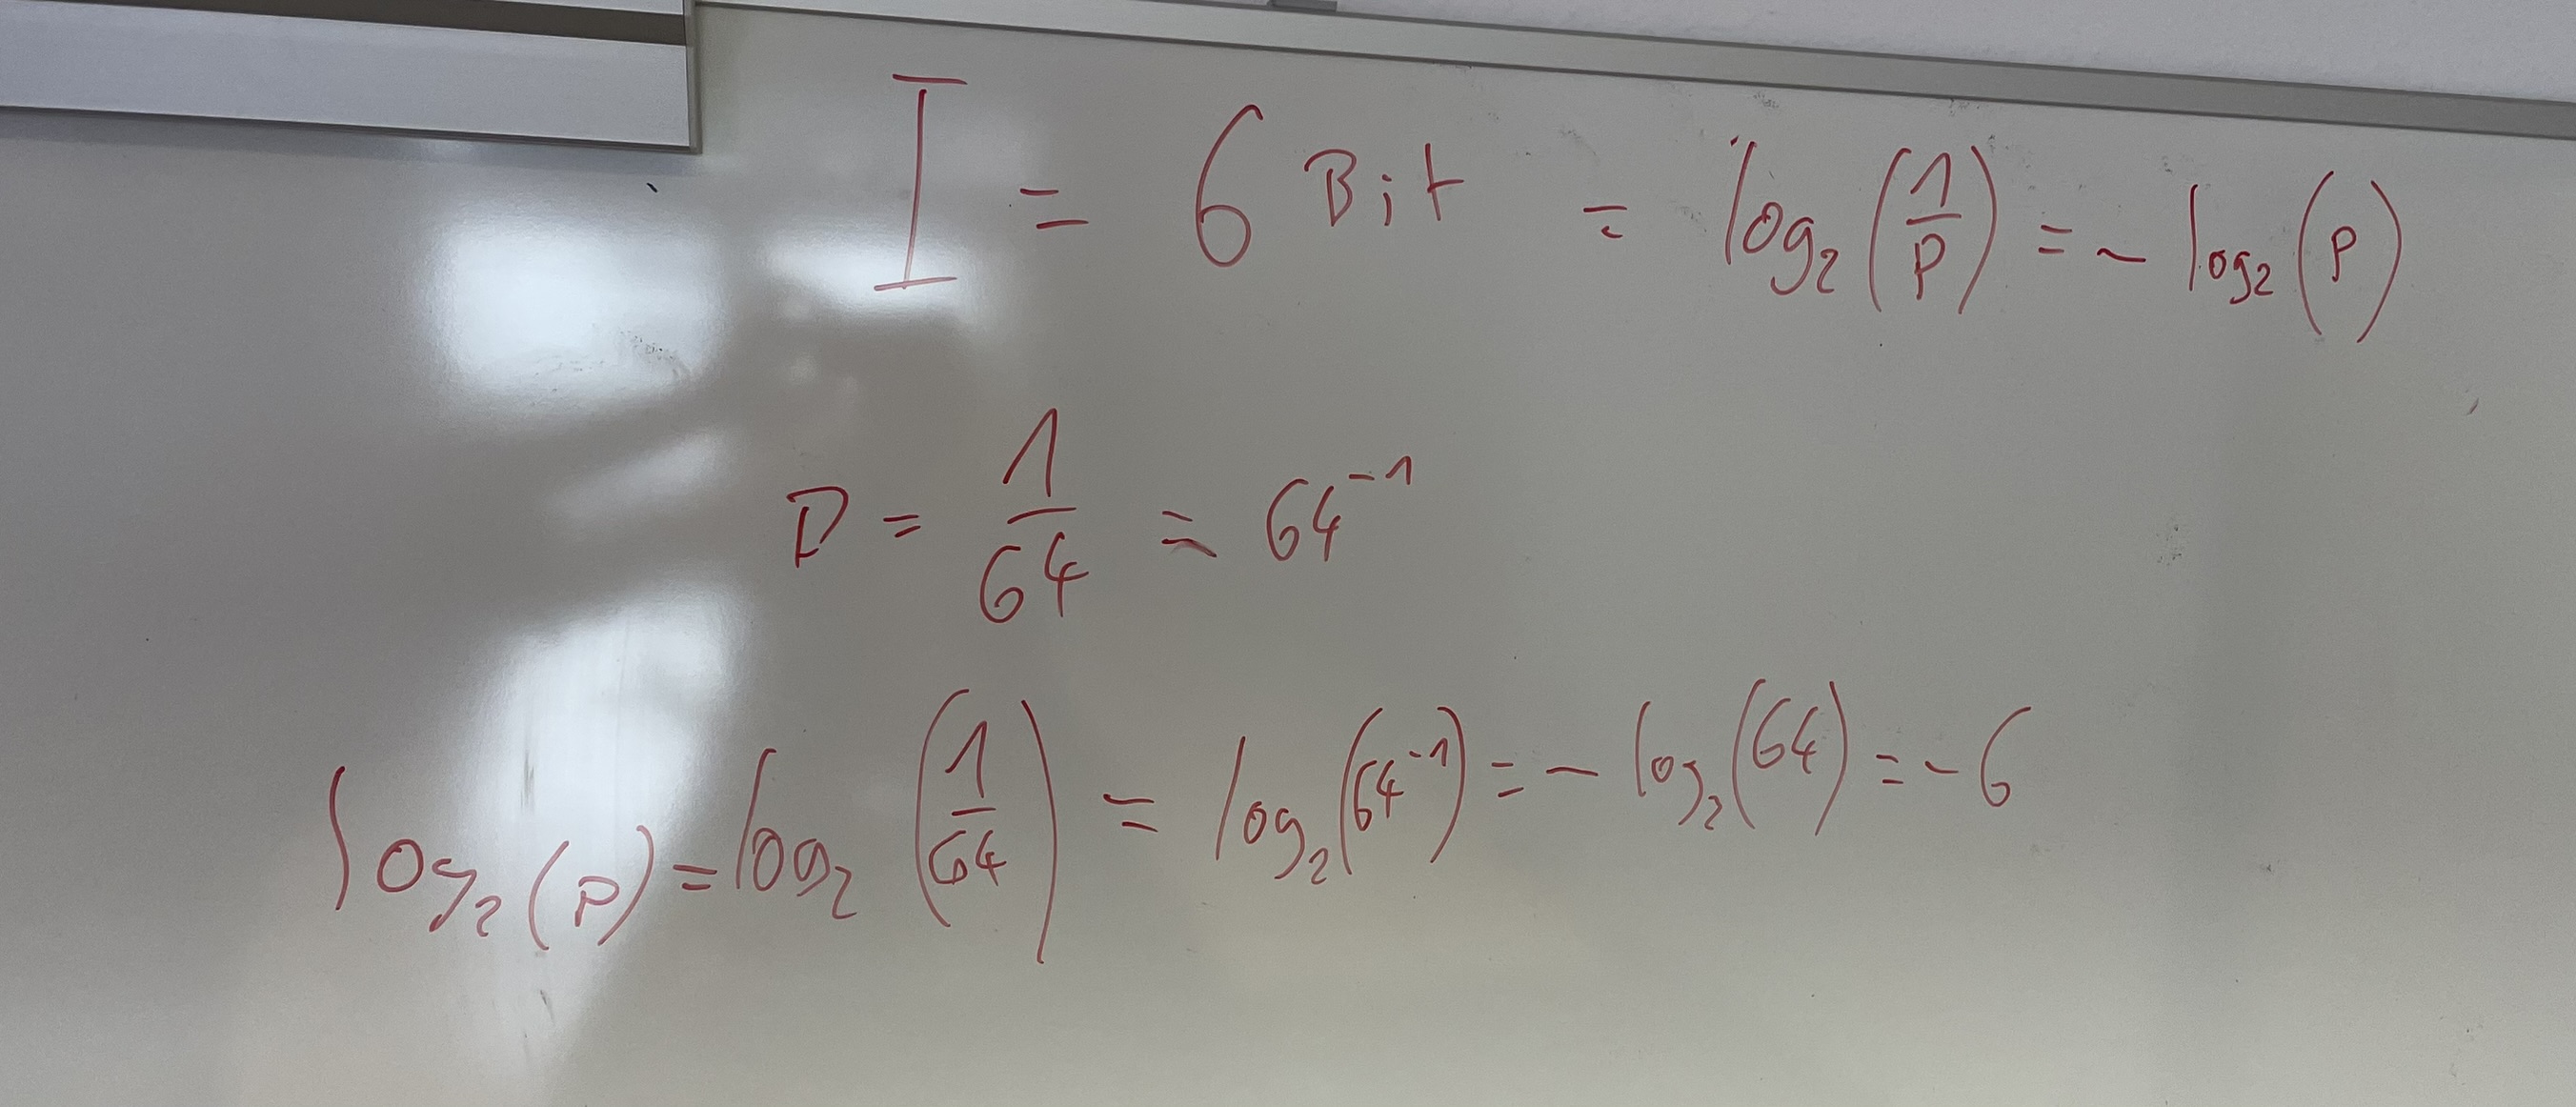 I = 6 Bit = log₂(1/P) = - log₂(P)
P = 1/64 = 64⁻¹
log₂(P) = log₂(1/64) = log₂(64⁻¹) = - log₂(64) = - 6